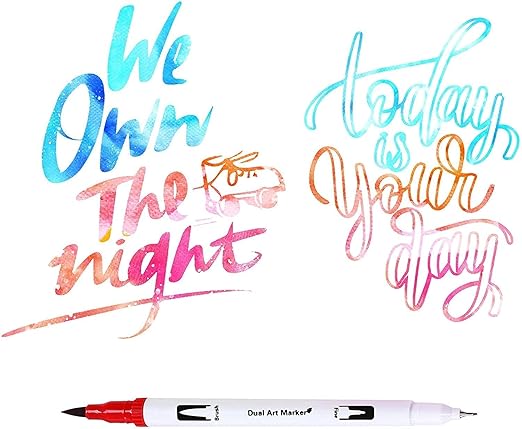 We
Own
The
night
today
is
Your
day
Brush
Dual Art Marker
Fine